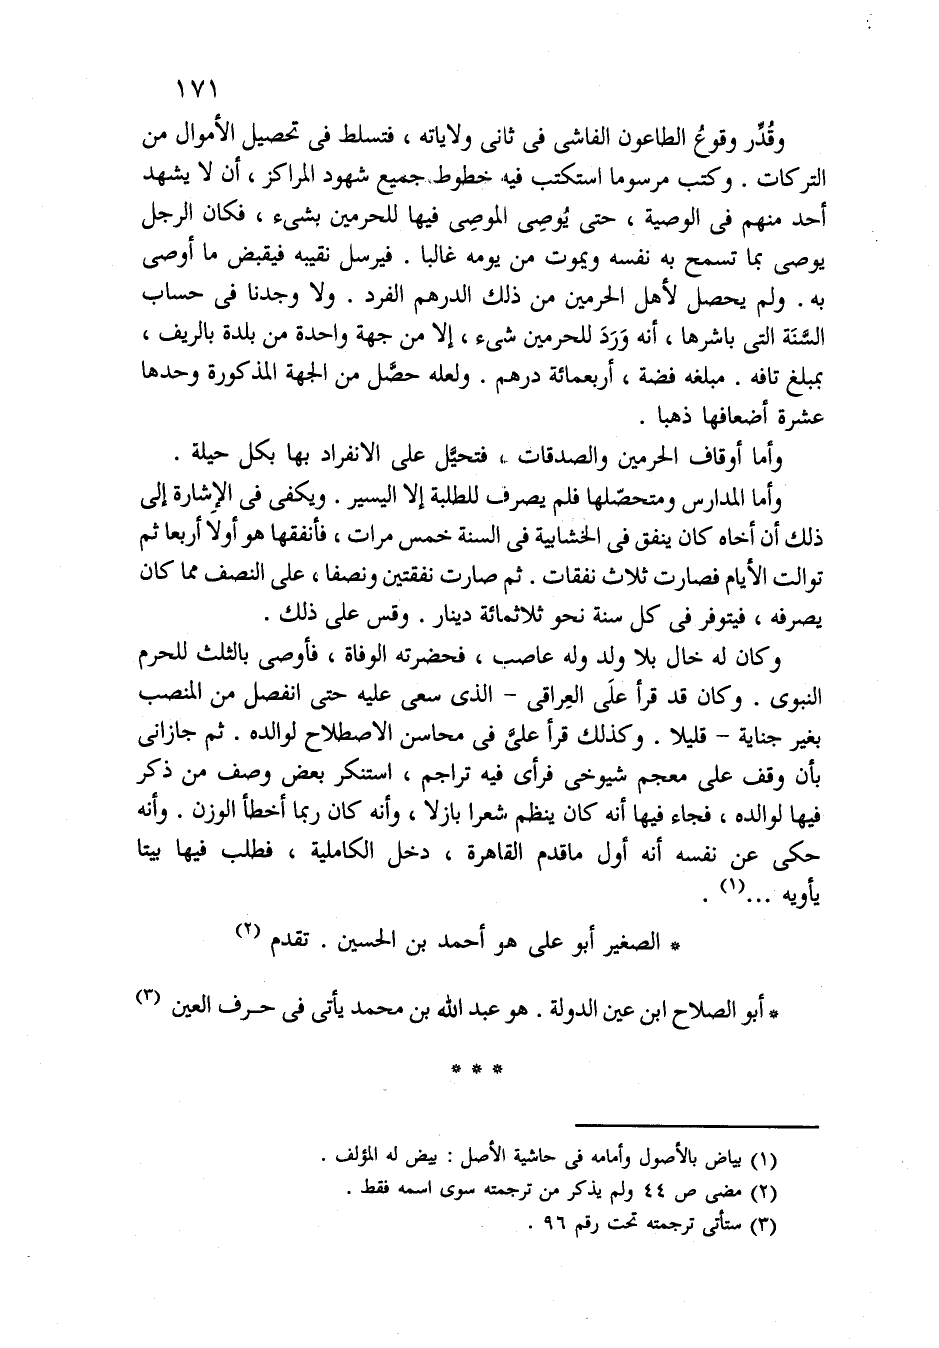 ١٧١
وقُدِّر وقوعُ الطاعون الفاشى فى ثانى ولاياته ، فتسلط فى تحصيل الأموال من
التركات . وكتب مرسوما استكتب فيه خطوط جميع شهود المراكز ، أن لا يشهد
أحد منهم فى الوصية ، حتى يُوصِى الموصِى فيها للحرمين بشىء ، فكان الرجل
يوصى بما تسمح به نفسه ويموت من يومه غالبا . فيرسل نقيبه فيقبض ما أوصى
به . ولم يحصل لأهل الحرمين من ذلك الدرهم الفرد . ولا وجدنا فى حساب
السَّنَة التى باشرها ، أنه وَرَدَ للحرمين شىء ، إلا من جهة واحدة من بلدة بالريف ،
بمبلغ تافه . مبلغه فضة ، أربعمائة درهم . ولعله حصَّل من الجهة المذكورة وحدها
عشرة أضعافها ذهبا .
وأما أوقاف الحرمين والصدقات ، فتحيَّل على الانفراد بها بكل حيلة .
وأما المدارس ومتحصّلها فلم يصرف للطلبة إلا اليسير . ويكفى فى الإشارة إلى
ذلك أن أخاه كان ينفق فى الخشابية فى السنة خمس مرات ، فأنفقها هو أولا أربعا ثم
توالت الأيام فصارت ثلاث نفقات . ثم صارت نفقتين ونصفا ، على النصف مما كان
يصرفه ، فيتوفر فى كل سنة نحو ثلاثمائة دينار . وقس على ذلك .
وكان له خال بلا ولد وله عاصب ، فحضرته الوفاة ، فأوصى بالثلث للحرم
النبوى . وكان قد قرأ علَى العِراقى - الذى سعى عليه حتى انفصل من المنصب
بغير جناية - قليلا . وكذلك قرأ علىَّ فى محاسن الاصطلاح لوالده . ثم جازانى
بأن وقف على معجم شيوخى فرأى فيه تراجم ، استنكر بعض وصف من ذكر
فيها لوالده ، فجاء فيها أنه كان ينظم شعرا بازلا ، وأنه كان ربما أخطأ الوزن . وأنه
حكى عن نفسه أنه أول ماقدم القاهرة ، دخل الكاملية ، فطلب فيها بيتا
يأويه ...(١) .
* الصغير أبو على هو أحمد بن الحسين . تقدم (٢)
* أبو الصلاح ابن عين الدولة . هو عبد الله بن محمد يأتى فى حرف العين (٣)
* * *
(١) بياض بالأصول وأمامه فى حاشية الأصل : بيض له المؤلف .
(٢) مضى ص ٤٤ ولم يذكر من ترجمته سوى اسمه فقط .
(٣) ستأتى ترجمته تحت رقم ٩٦ .